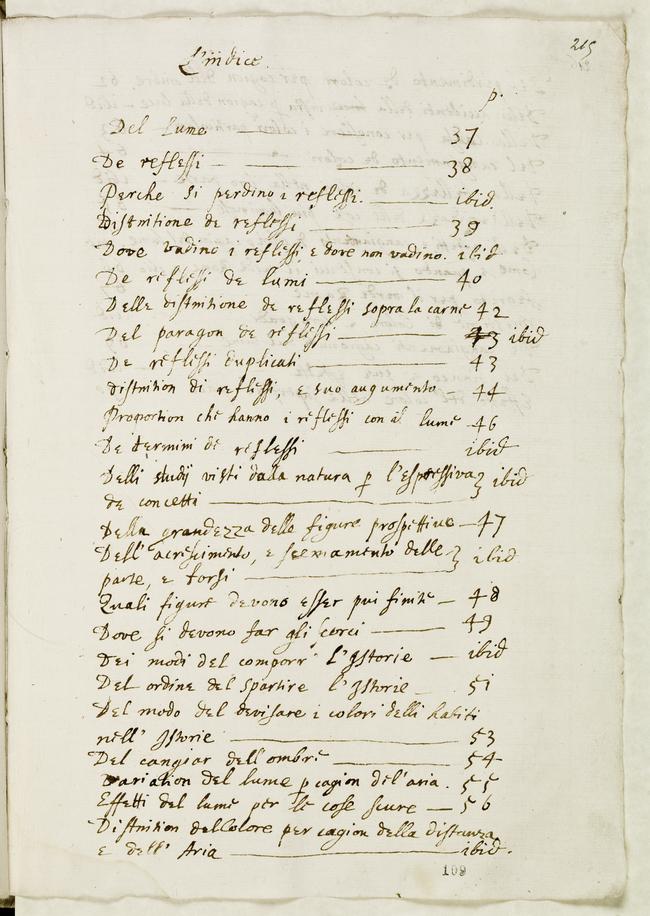 215
L'indice.
p.
Del Lume 37
De reflessi 38
Perche si perdino i reflessi. ibid
Disfnitione de reflessi 39
Dove vadino i reflessi, e dove non vadino. ibid
De reflessi de lumi 40
Delle disfnitione de reflessi sopra la carne 42
Del paragon de reflessi 43 ibid
De reflessi duplicati 43
disfnition di reflessi, e suo augumento 44
Proportion che hanno i reflessi con il lume 46
De termini de reflessi ibid
Delli studij visti dala natura p l'espressiva ibid
de concetti
Della grandezza delle figure prospettive 47
Dell' acrescimento, e delle ibid
parte, e torsi
Quali figure devono esser pui finite 48
Dove si devono far gli scorci 49
Dei modi del comporr' l'Istorie ibid
Del ordine del spartire l'Istorie 51
Del modo del devisare i colori delli habiti
nell' Istorie 53
Del cangiar dell'ombre 54
Variation del lume p cagion del'aria. 55
Effetti del lume per le cose scure 56
Disfnition del Colore per cagion della distanza
e dell' Aria ibid.
109